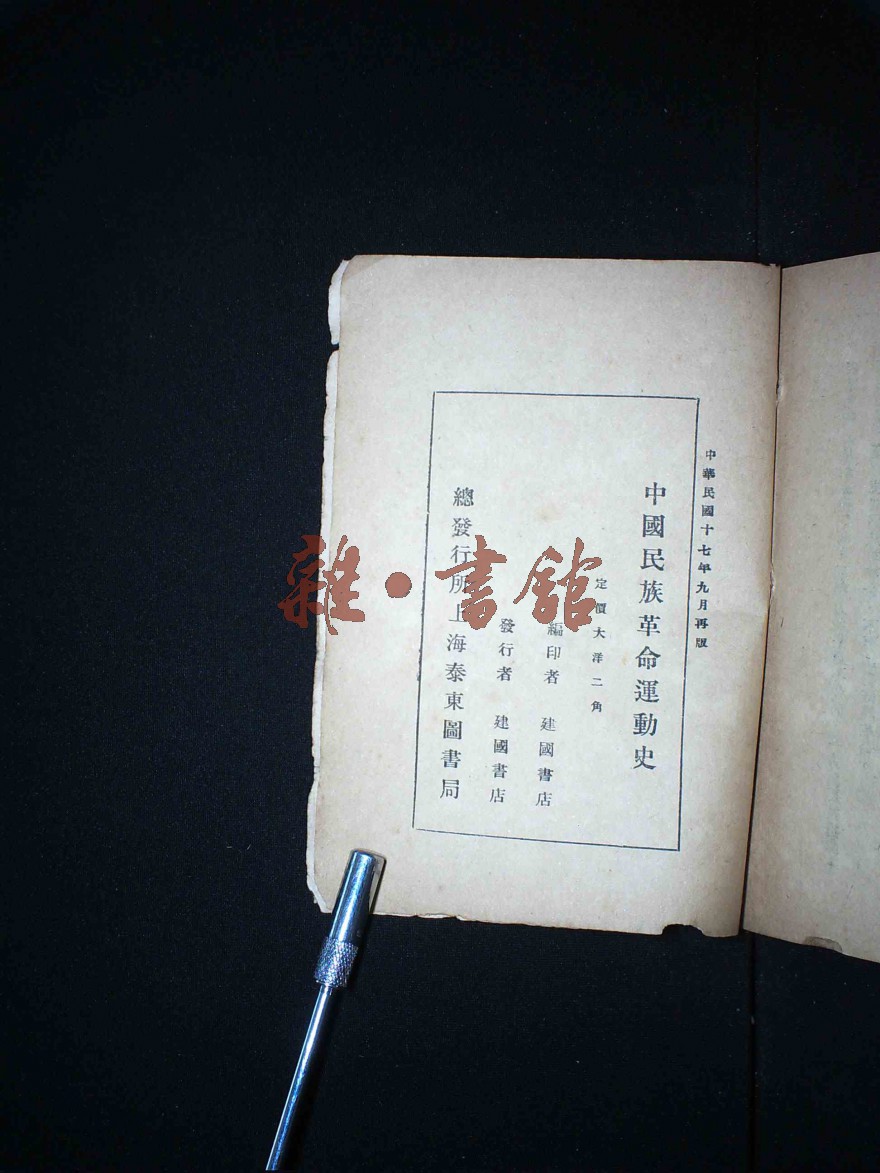 中華民國十七年九月再版
中國民族革命運動史
定價大洋二角
編印者 建國書店
發行者 建國書店
總發行所上海泰東圖書局
雜·書館